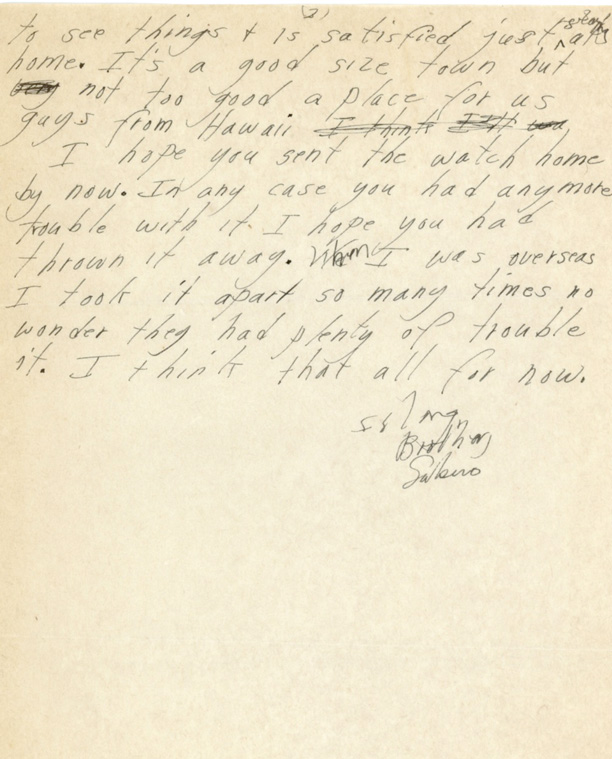 (2)
to see things & is satisfied just staying at
home. It's a good size town but
not too good a place for us
guys from Hawaii I think
I hope you sent the watch home
by now. In any case you had anymore
trouble with it. I hope you had
thrown it away. When I was overseas
I took it apart so many times no
wonder they had plenty of trouble
it. I think that all for now.
Brother